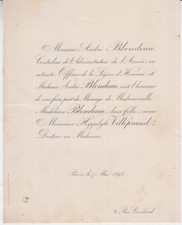 Monsieur André Blondeau,
Contrôleur de l'Administration de l'Armée, en
retraite, Officier de la Légion d'Honneur et
Madame André Blondeau ont l'honneur
de vous faire part du Mariage de Mademoiselle
Madeleine Blondeau, leur fille, avec
Monsieur Hippolyte Villeprand,
Docteur en Médecine.
Mai
Rue